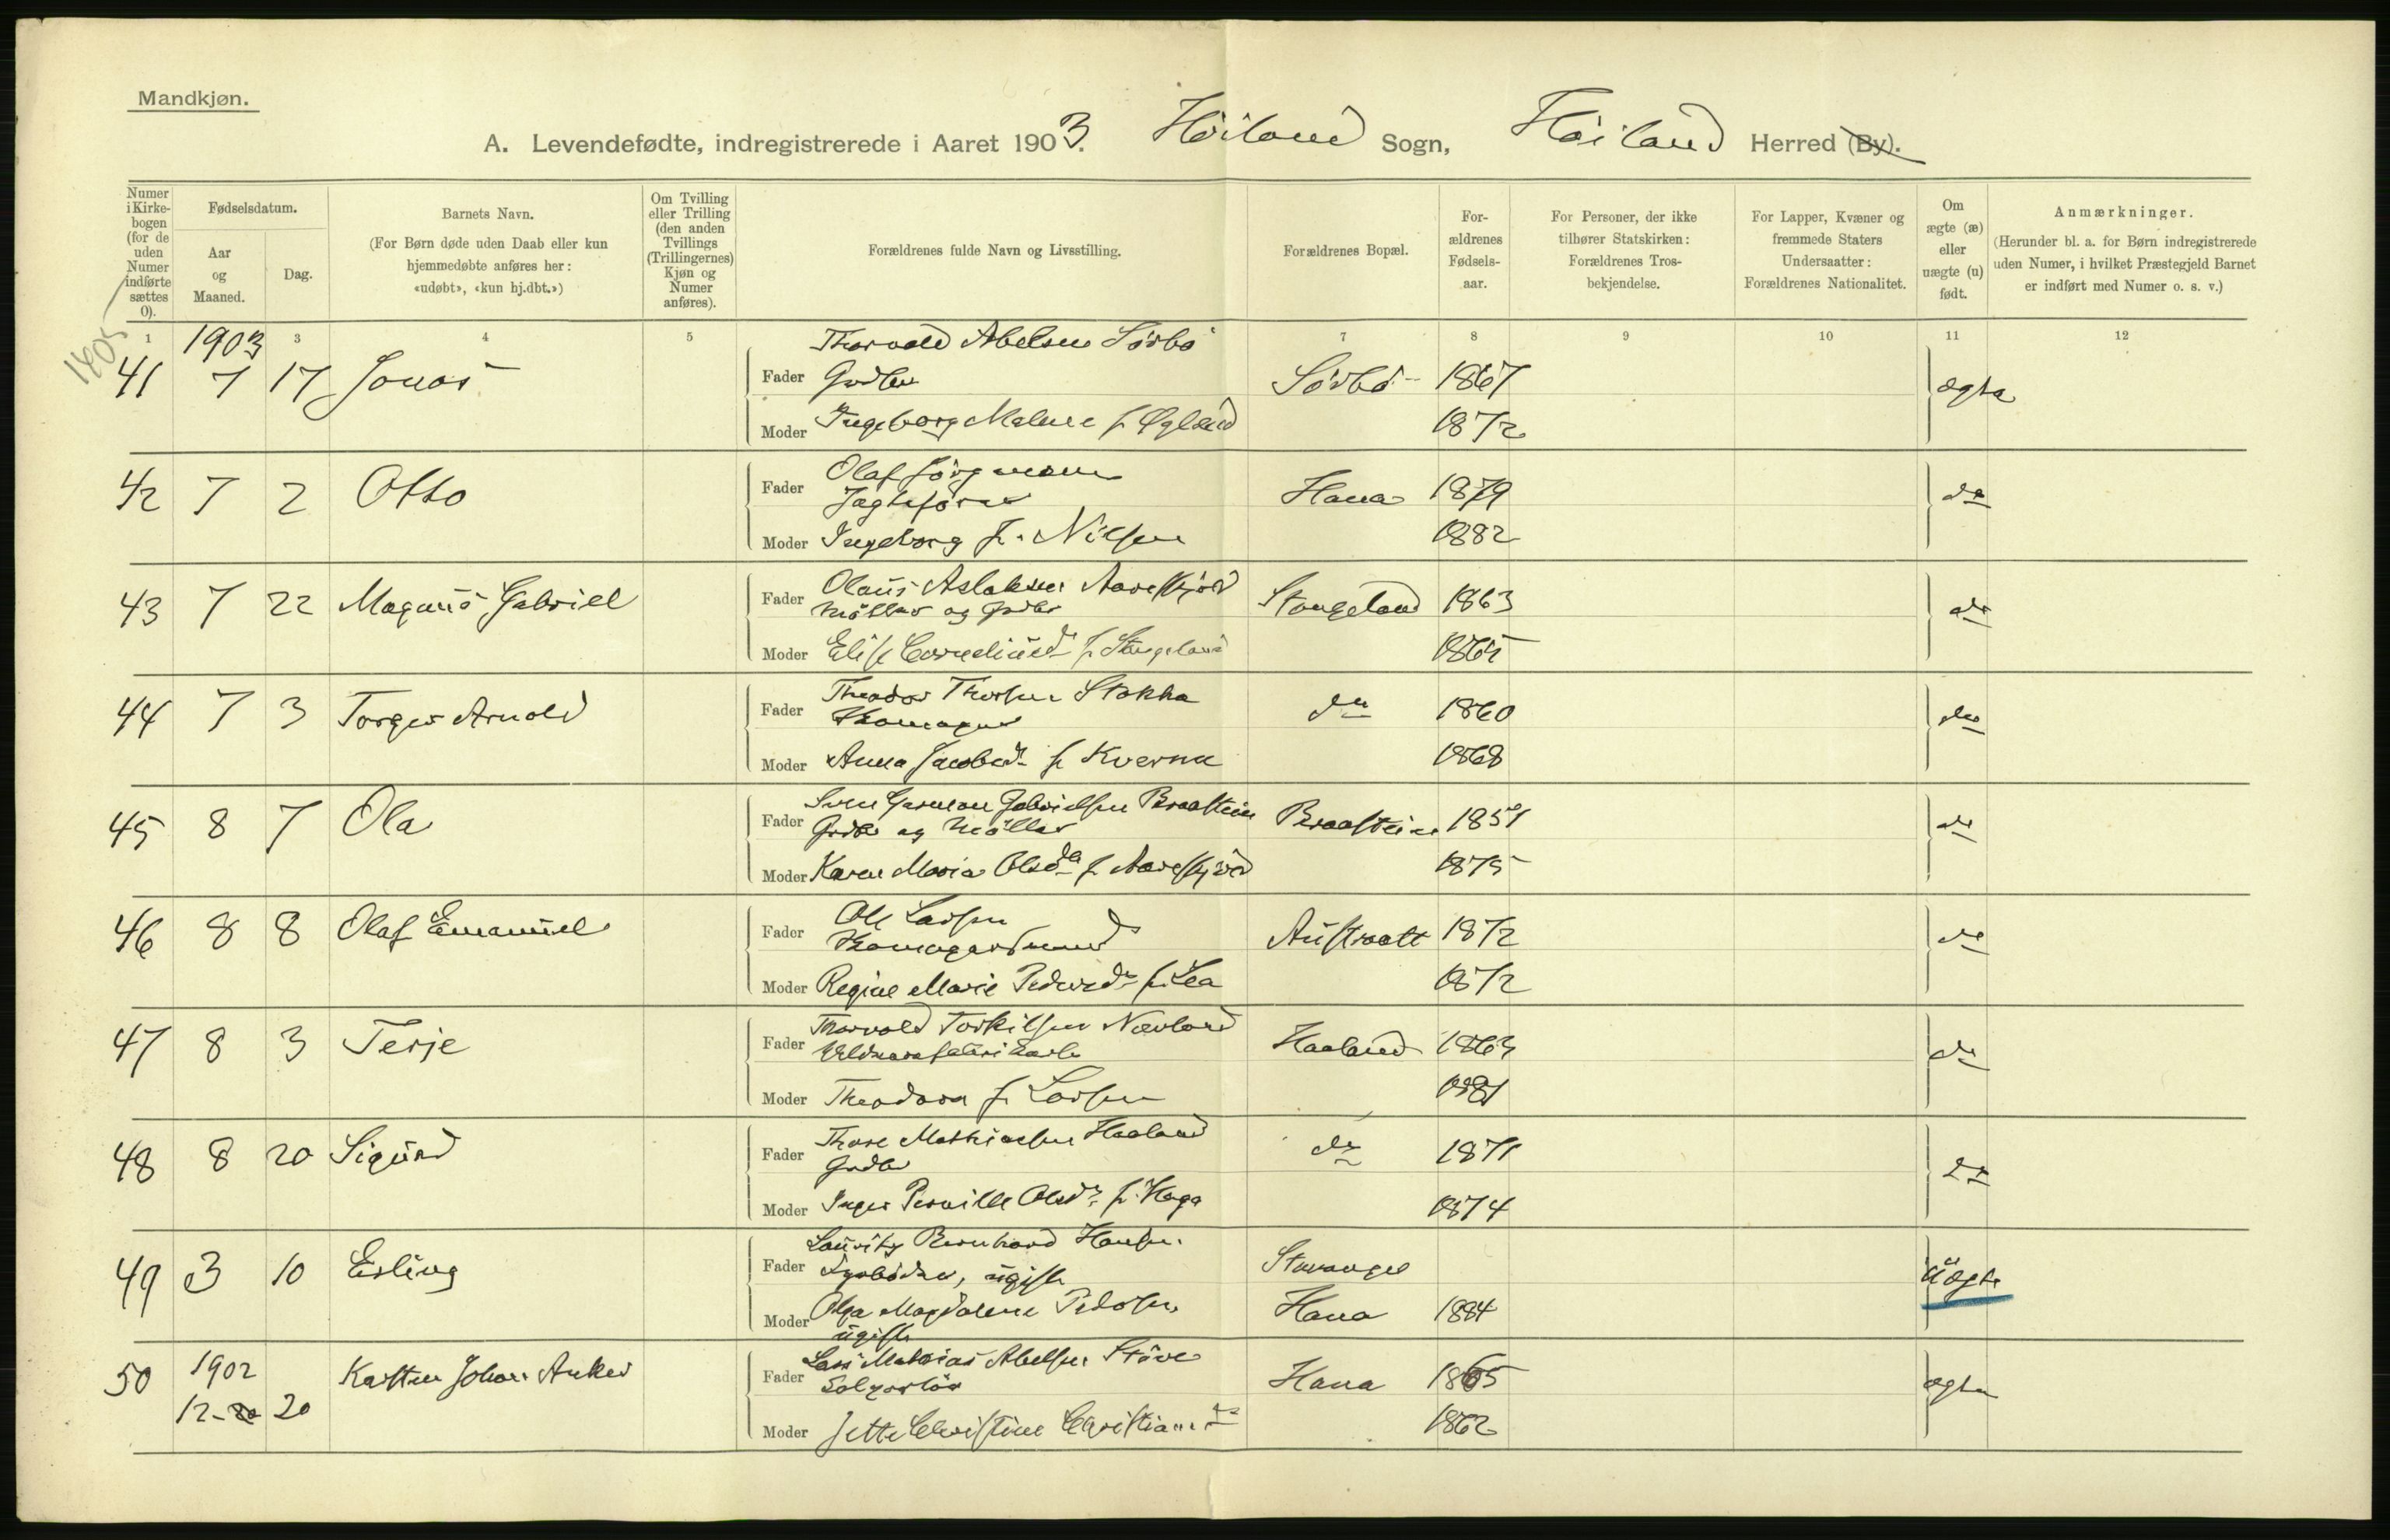 Mandkjøn.
A. Levendefødte, indregistrerede i Aaret 1903. Höiland Sogn, Höiland Herred (By).
Numer i Kirkebogen (for de uden Numer indførte sættes 0).
Fødselsdatum.
Aar og Maaned.
Dag.
Barnets Navn.
(For Børn døde uden Daab eller kun hjemmedøbte anføres her: «udøbt», «kun hj.dbt.»)
Om Tvilling eller Trilling (den anden Tvillings (Trillingernes) Kjøn og Numer anføres).
Forældrenes fulde Navn og Livsstilling.
Forældrenes Bopæl.
Forældrenes Fødselsaar.
For Personer, der ikke tilhører Statskirken: Forældrenes Trosbekjendelse.
For Lapper, Kvæner og fremmede Staters Undersaatter: Forældrenes Nationalitet.
Om ægte (æ) eller uægte (u) født.
Anmærkninger.
(Herunder bl. a. for Børn indregistrerede uden Numer, i hvilket Præstegjeld Barnet er indført med Numer o. s. v.)
1 3 4 5 7 8 9 10 11 12
1405
1903
Thorvald Abelsen Sörbö
41 7 17 Jonas Fader Grdbr Sörbö 1867 ægte
Moder Ingeborg Malene f. Øgland 1872
Olaf Jörgensen
42 7 2 Otto Fader Jagtefører Hana 1879 do
Moder Ingeborg f. Nilsen 1882
Olaus Aslaksen Aareskjold
43 7 22 Magnus Gabriel Fader Möller og Grdbr Stangeland 1863 do
Moder Elise Corneliusd. f. Stangeland 1865
Theodor Thorsen Stokka
44 7 3 Torger Arnold Fader do 1860 do
Moder Anna Jacobsd. f. Kverne 1868
Sven Gabrielsen Braastein
45 8 7 Ola Fader Grdbr og Möller Braastein 1851 do
Moder Karen Maria Olsd. f. Aareskjold 1875
Ole Larsen
46 8 8 Olaf Emanuel Fader Austraatt 1872 do
Moder Regine Marie Pedersd. f. Lea 1872
Thorvald Torkilsen Nævland
47 8 3 Terje Fader Haaland 1863 do
Moder Theodora f. Larsen 1881
Thore Mathiasen Haaland
48 8 20 Sigurd Fader Grdbr do 1871 do
Moder Inger Pernille Olsd. f. Haga 1874
Lauritz Bernhard Hansen
49 3 10 Erling Fader ugift Stavanger uægte
Moder Olga Magdalene Pedersen Hana 1884
ugift
Lars Mathias Abelsen Stöve
50 1902 Karsten Johan Anker Fader Hana 1865 ægte
12-20 20
Moder Jette Christine Christiansd. 1862